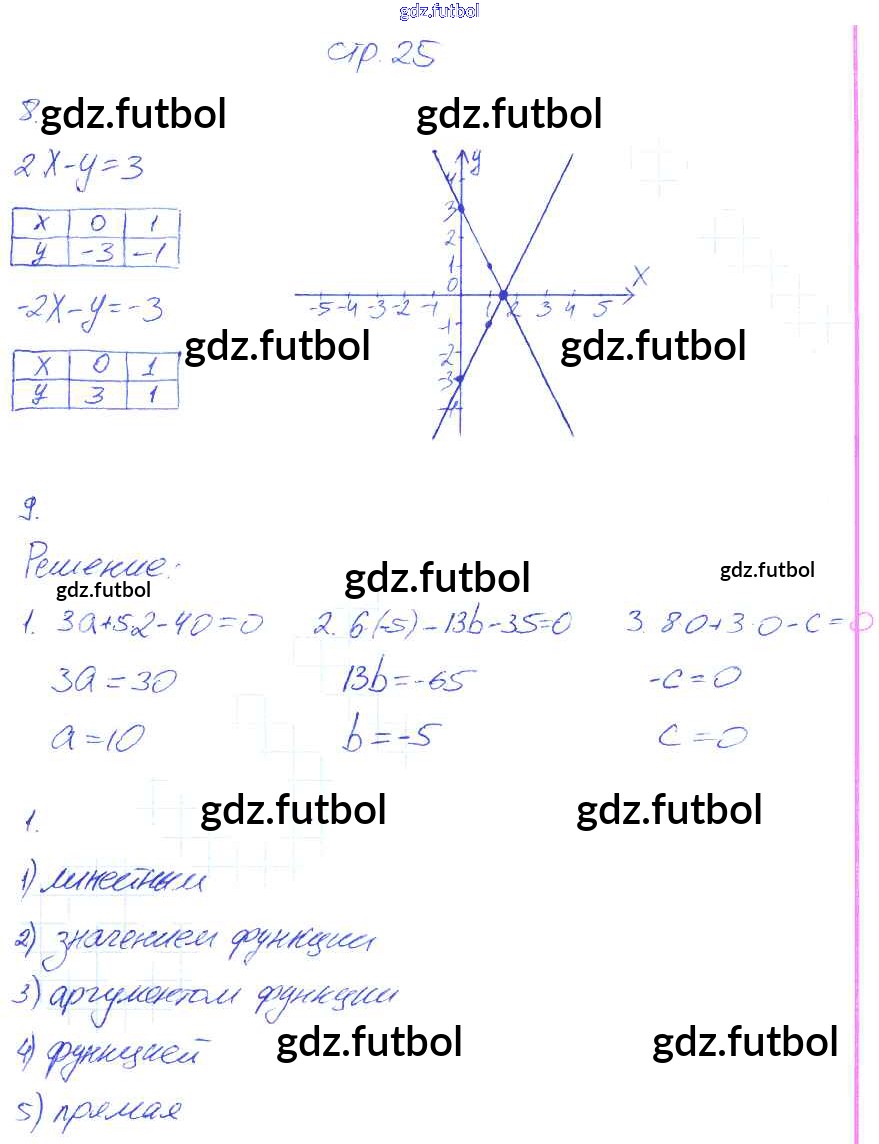 gdz.futbol
стр. 25
8. gdz.futbol gdz.futbol
2x-y=3
x 0 1
y -3 -1
-2x-y=-3
x 0 1
y 3 1
y
4
3
2
1
0
x
-5 -4 -3 -2 -1 1 2 3 4 5
-1
-2
-3
-4
gdz.futbol gdz.futbol
9.
Решение:
gdz.futbol gdz.futbol gdz.futbol
1. 3a+5·2-40=0 2. 6·(-5)-13b-35=0 3. 8·0+3·0-c=0
3a=30 13b=-65 -c=0
a=10 b=-5 c=0
gdz.futbol gdz.futbol
1.
1) линейным
2) значением функции
3) аргументом функции
4) функцией gdz.futbol gdz.futbol
5) прямая